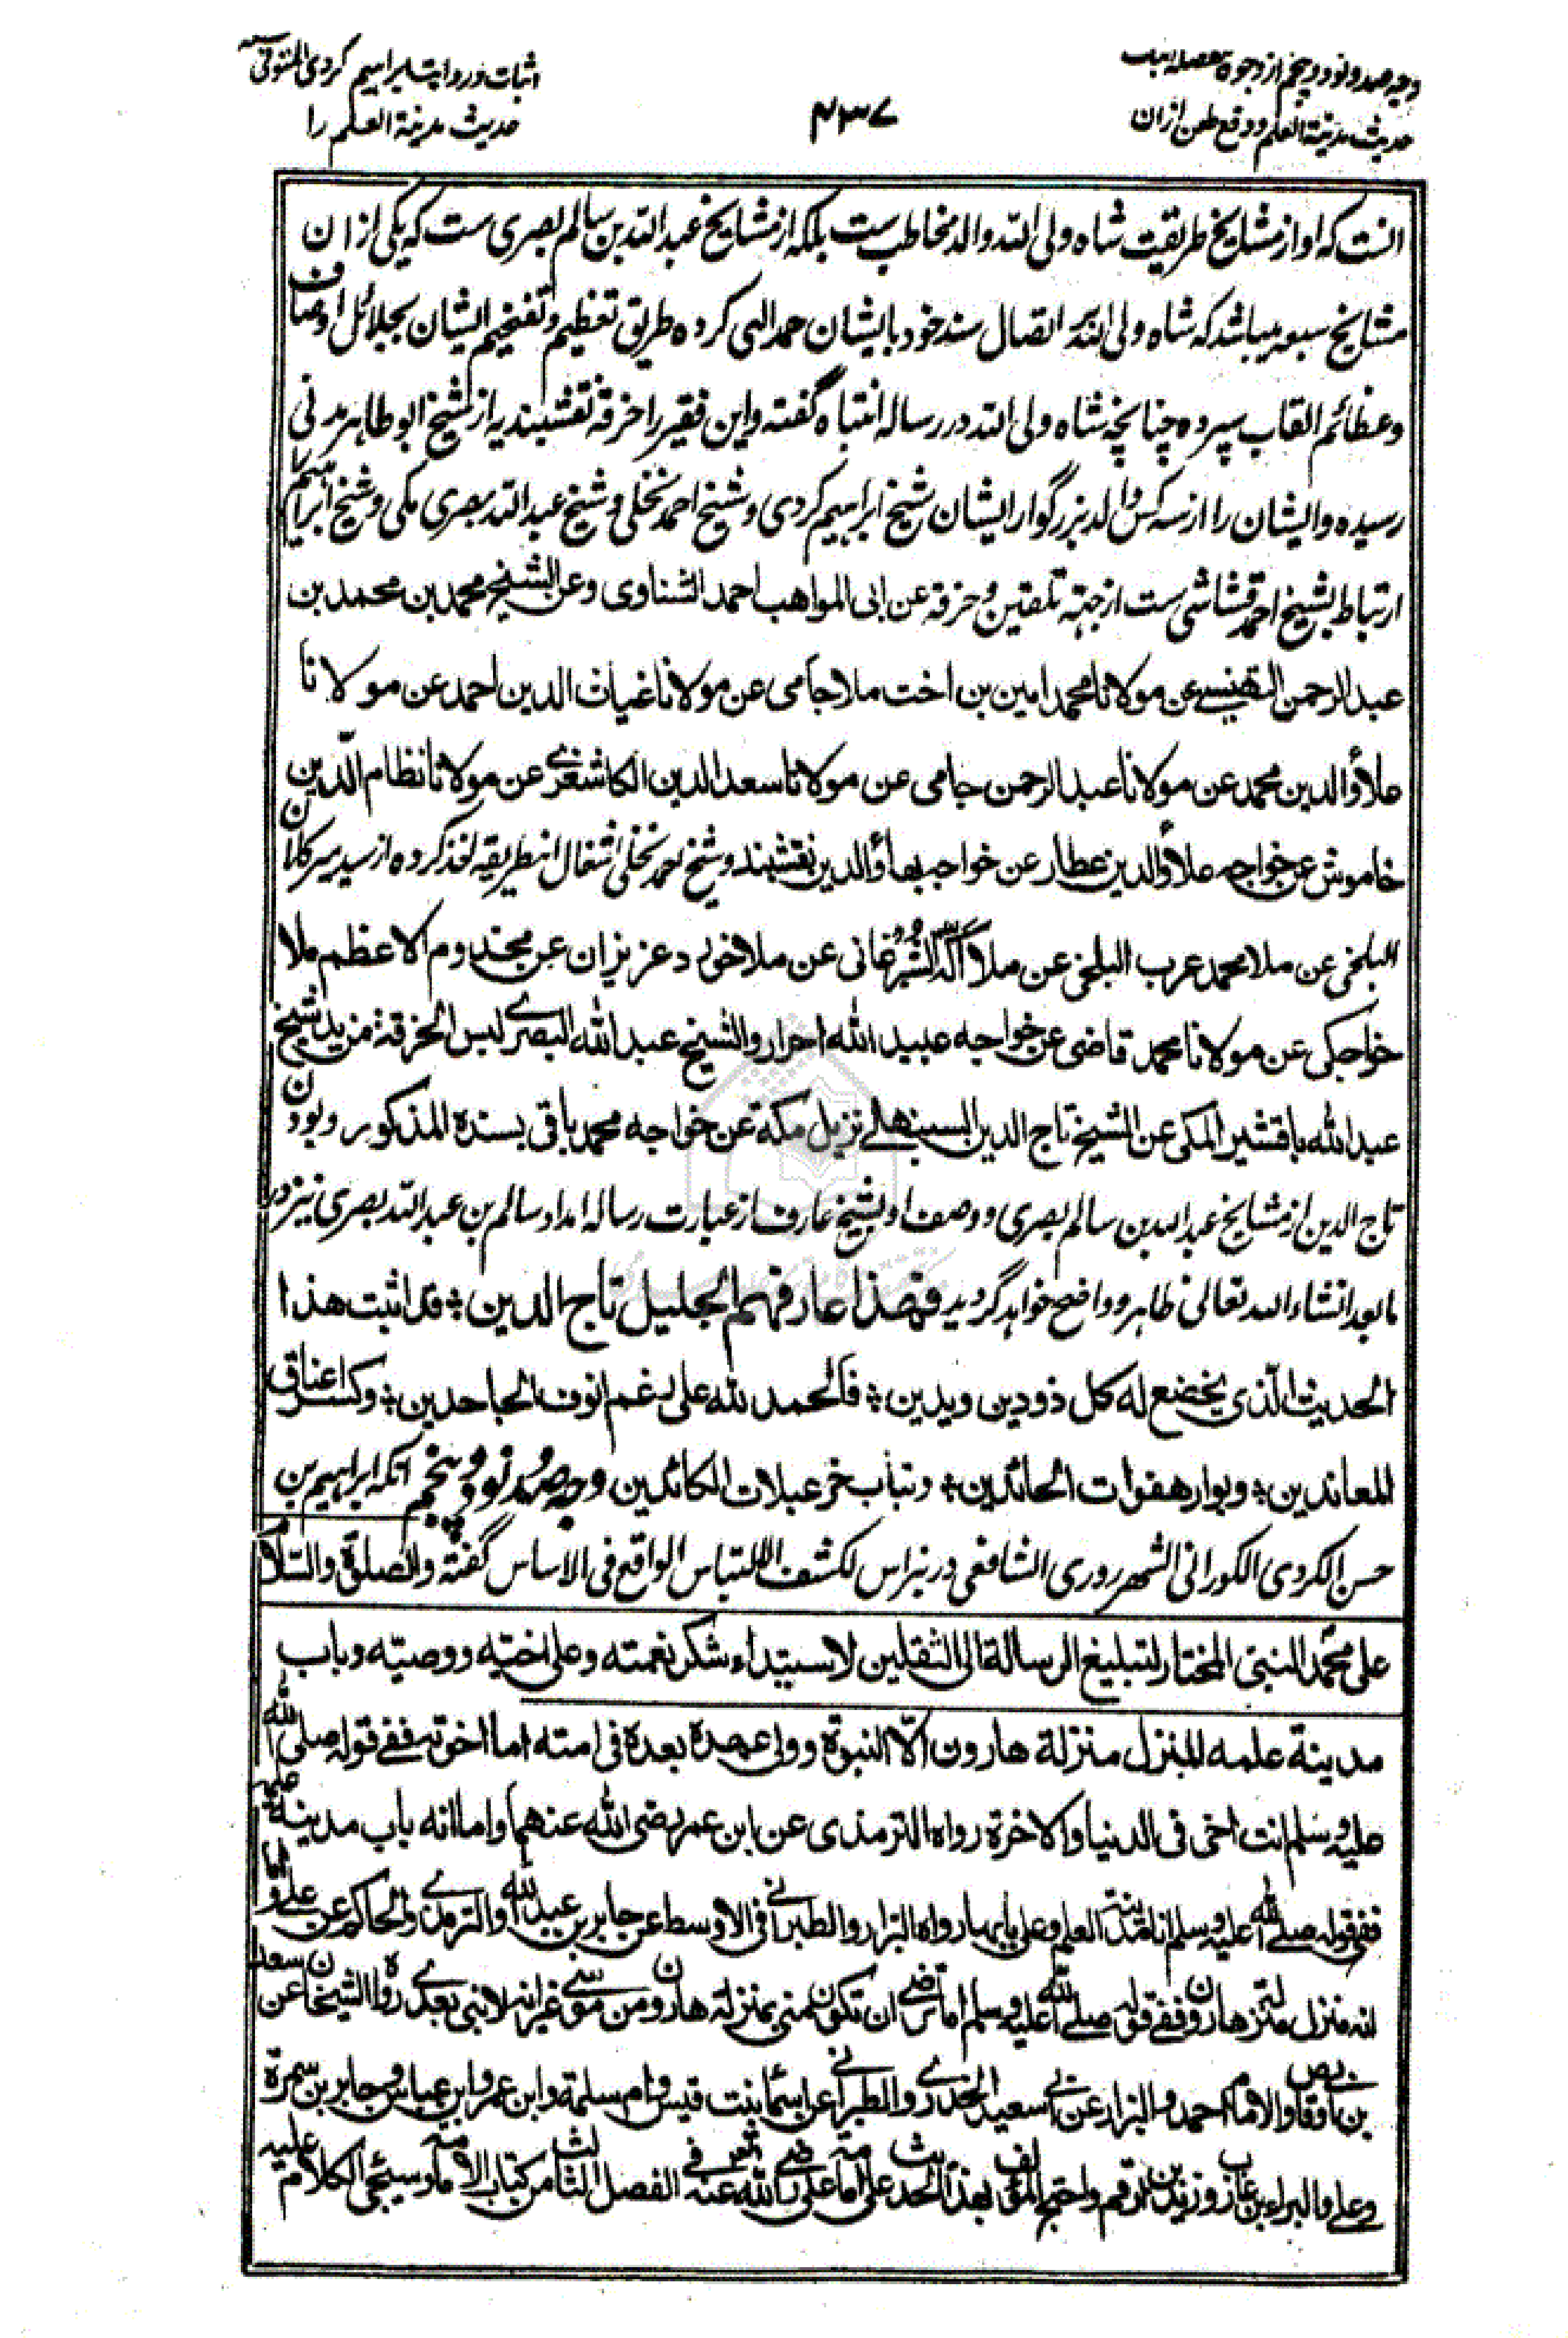 وجه صد و نود و پنجم از وجوه مفصله اثبات
حدیث مدینة العلم و دفع طعن ازان
۴۳۷
اثبات و روایت ابراهیم کردی المتوفی
حدیث مدینة العلم را
انست که او از مشایخ طریقت شاه ولی الله والد مخاطب ست بلکه از مشایخ عبدالله بن سالم بصری ست که یکی ازان
مشایخ سبعه میباشد که شاه ولی الله بر اتصال سند خود بایشان حمد الهی کرده طریق تعظیم و تفخیم ایشان بجلائل اوصاف
و عظائم القاب سپرده چنانچه شاه ولی الله در رساله انتباه گفته و این فقیر را خرقه نقشبندیه از شیخ ابو طاهر مدنی
رسیده و ایشان را از سه کس والد بزرگوار ایشان شیخ ابراهیم کردی و شیخ احمد نخلی و شیخ عبدالله بصری مکی و شیخ ابراهیم
ارتباط بشیخ احمد قشاشی ست از جهة تلقین و خرقه عن ابی المواهب احمد الشناوی وعن الشیخ محمد بن محمد بن
عبد الرحمن البهنسی عن مولانا محمد امین بن اخت ملا جامی عن مولانا غیاث الدین احمد عن مولانا
علاؤ الدین محمد عن مولانا عبد الرحمن جامی عن مولانا سعد الدین الکاشغری عن مولانا نظام الدّین
خاموش عن خواجه علاؤ الدین عطار عن خواجه بهاؤ الدین نقشبند و شیخ احمد نخلی اشغال این طریقه اخذ کرده از سید میر کلان
البلخی عن ملا محمد عرب البلخی عن ملا اکه الشبرغانی عن ملا خورد عزیزان عن مخدوم الاعظم ملا
خواجکی عن مولانا محمد قاضی عن خواجه عبید الله احرار والشیخ عبد الله البصری لبس الخرقة من ید شیخ
عبد الله باقشیر المکی عن الشیخ تاج الدین السنبهلی نزیل مکة عن خواجه محمد باقی بسنده المذکور و بودن
تاج الدین از مشایخ عبدالله بن سالم بصری و وصف او بشیخ عارف از عبارت رساله امداد سالم بن عبد الله بصری نیز در
ما بعد انشاء الله تعالی ظاهر و واضح خواهد گردید فهذا عارفهم الجلیل تاج الدین ÷ قد اثبت هذا
الحدیث الّذی یخضع له کل ذو دین و یدین ÷ فالحمد لله علی رغم انوف الجاحدین ÷ وکسر اعناق
المعاندین ÷ وبوار هفوات الحائدین ÷ وتباب خزعبلات الکائدین وجه صد و نود و پنجم آنکه ابراهیم بن
حسن الکردی الکورانی الشهرروری الشافعی در نبراس لکشف الالتباس الواقع فی الاساس گفته والصلوة والسّلام
علی محمّد النبیّ المختار لتبلیغ الرسالة الی الثقلین لاستیداء شکر نعمته وعلی اخیه ووصیّه وباب
مدینة علمه المنزل منزلة هارون الّا النبوة وولی عهده بعده فی امته اما اخوته ففی قوله صلی الله
علیه وسلم انت اخی فی الدنیا والاخرة رواه الترمذی عن ابن عمر رضی الله عنهما واما انه باب مدینة علمه
ففی قوله صلی الله علیه وسلم انا مدینة العلم وعلی بابها رواه البزار والطبرانی فی الاوسط عن جابر بن عبد الله والترمذی والحاکم عن علی واما
انه منزل منزلة هارون ففی قوله صلی الله علیه وسلم اما ترضی ان تکون منی بمنزلة هارون من موسی غیر انه لا نبی بعدی رواه الشیخان عن سعد
بن ابی وقاص والامام احمد والبزار عن ابی سعید الخدری والطبرانی عن اسماء بنت قیس وام سلمة وابن عمر وابن عباس وجابر بن سمرة
وعلی والبراء بن عازب وزید بن ارقم واحتج المؤلف بهذا الحدیث علی امامة علی رضی الله عنه فی الفصل الثالث من کتاب الامامة وسیجیء الکلام علیه